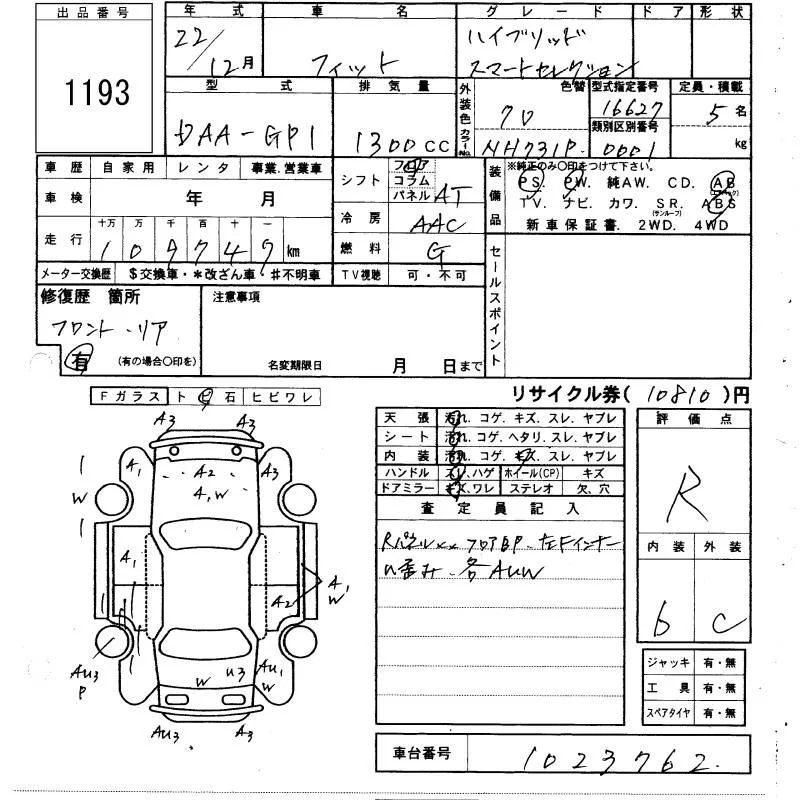 出品番号 年式 車名 グレード ドア 形状
1193
22/12月 フィット ハイブリッド
スマートセレクション
型式 排気量 外装色 色替 型式指定番号 定員・積載
DAA-GP1 1300CC クロ 16627 5名
カラーNo. NH731P 類別区別番号 0001 kg
車歴 自家用 レンタ 事業.営業車
シフト フロア コラム パネル AT
装備品 ※純正のみ○印をつけて下さい。
PS. PW. 純AW. CD. AB(エアバック)
TV. ナビ. カワ. SR.(サンルーフ) ABS
新車保証書. 2WD. 4WD
車検 年 月
冷房 AAC
走行 十万 万 千 百 十 一
109749km
燃料 G
メーター交換歴 $交換車・*改ざん車・♯不明車
TV視聴 可・不可
セールスポイント
修復歴 箇所 注意事項
フロント・リア
有 (有の場合○印を)
名変期限日 月 日まで
リサイクル券(10810)円
Fガラス トビ石 ヒビワレ
天張 汚れ. コゲ. キズ. スレ. ヤブレ
シート 汚れ. コゲ. ヘタリ. スレ. ヤブレ
内装 汚れ. コゲ. キズ. スレ. ヤブレ
ハンドル スレ.ハゲ ホイール(CP) キズ
ドアミラー キズ.ワレ ステレオ 欠、穴
評価点
R
内装 外装
b C
査定員記入
Rパネルxx フロアBP. 左Fインナー
U歪み. 各AUW
A3 A3
A1 A2 A3
A,W
W
A1
A2 A1
W
AU3
P
W U3 AU1
W
AU3 A3
ジャッキ 有・無
工具 有・無
スペアタイヤ 有・無
車台番号 1023762.